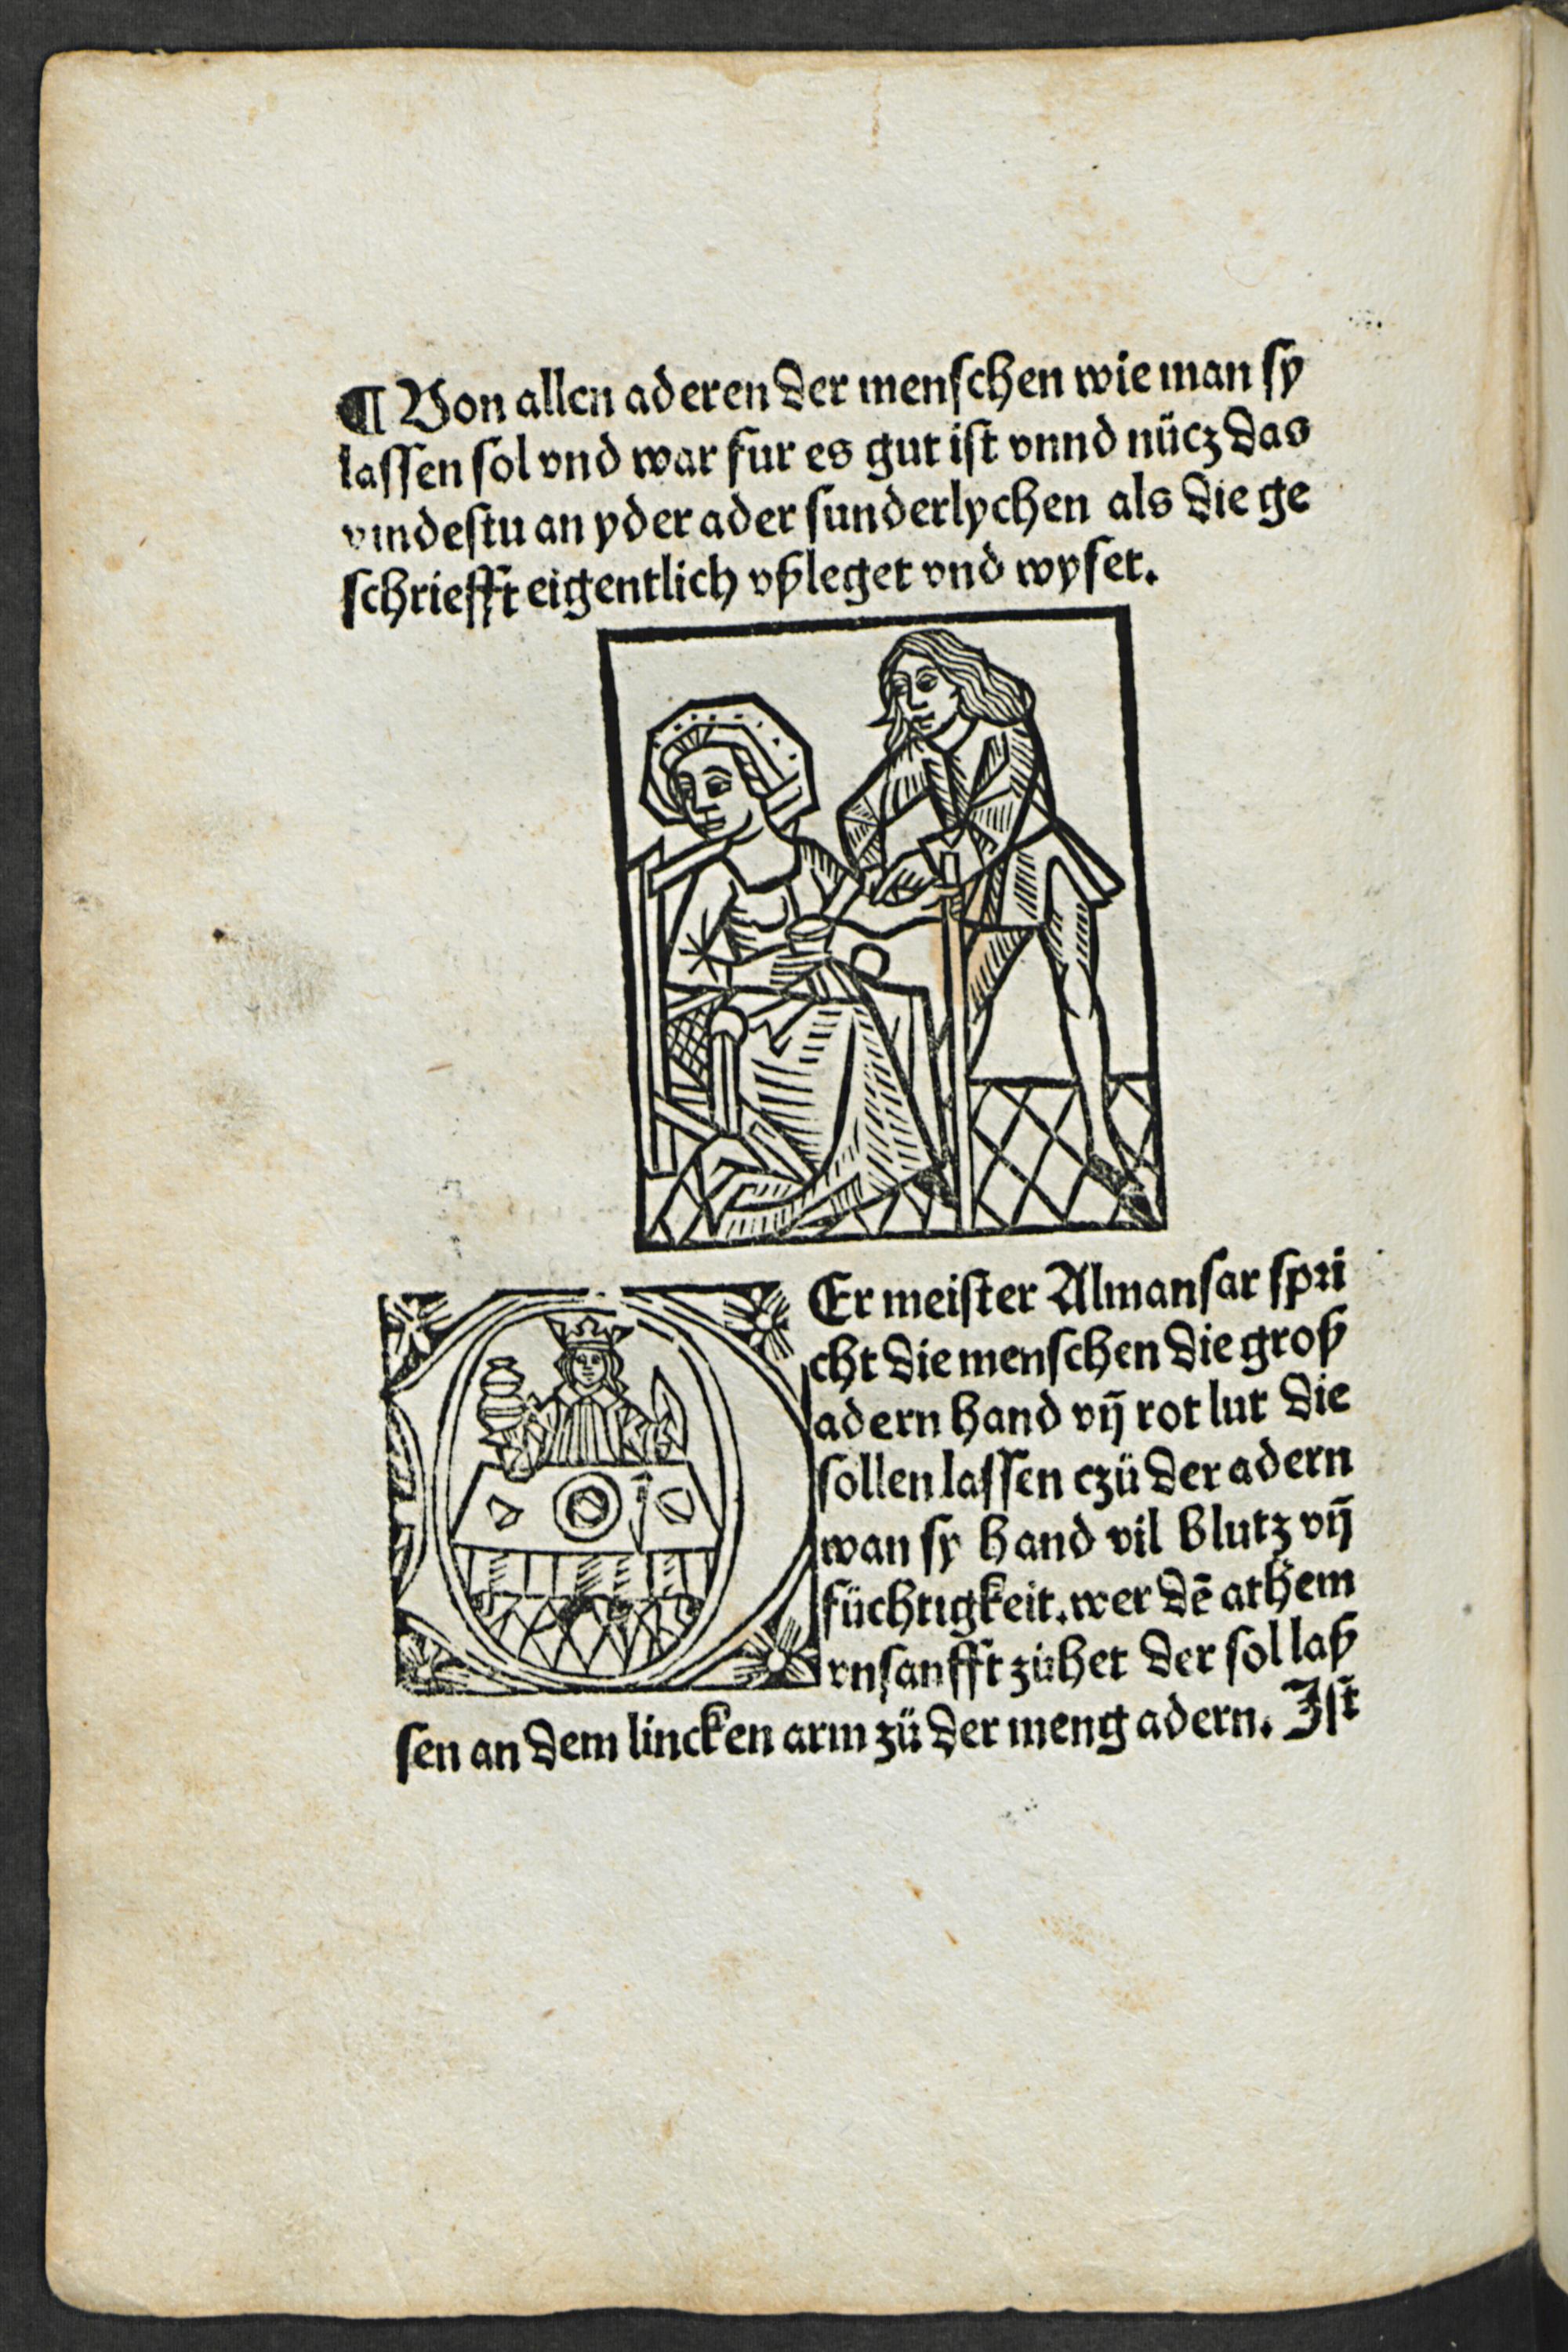 ¶ Von allen aderen der menschen wie man sy
lassen sol vnd war fur es gut ist vnnd nücz das
vindestu an yder ader sunderlychen als die ge
schriefft eigentlich vßleget vnd wyset.
Er meister Almansar spri
cht die menschen die groß
adern hand vñ rot lut die
sollen lassen czü der adern
wan sy hand vil blutz vñ
füchtigkeit. wer dē athem
vnsanfft zühet der sol laß
sen an dem lincken arm zü der meng adern. Ist